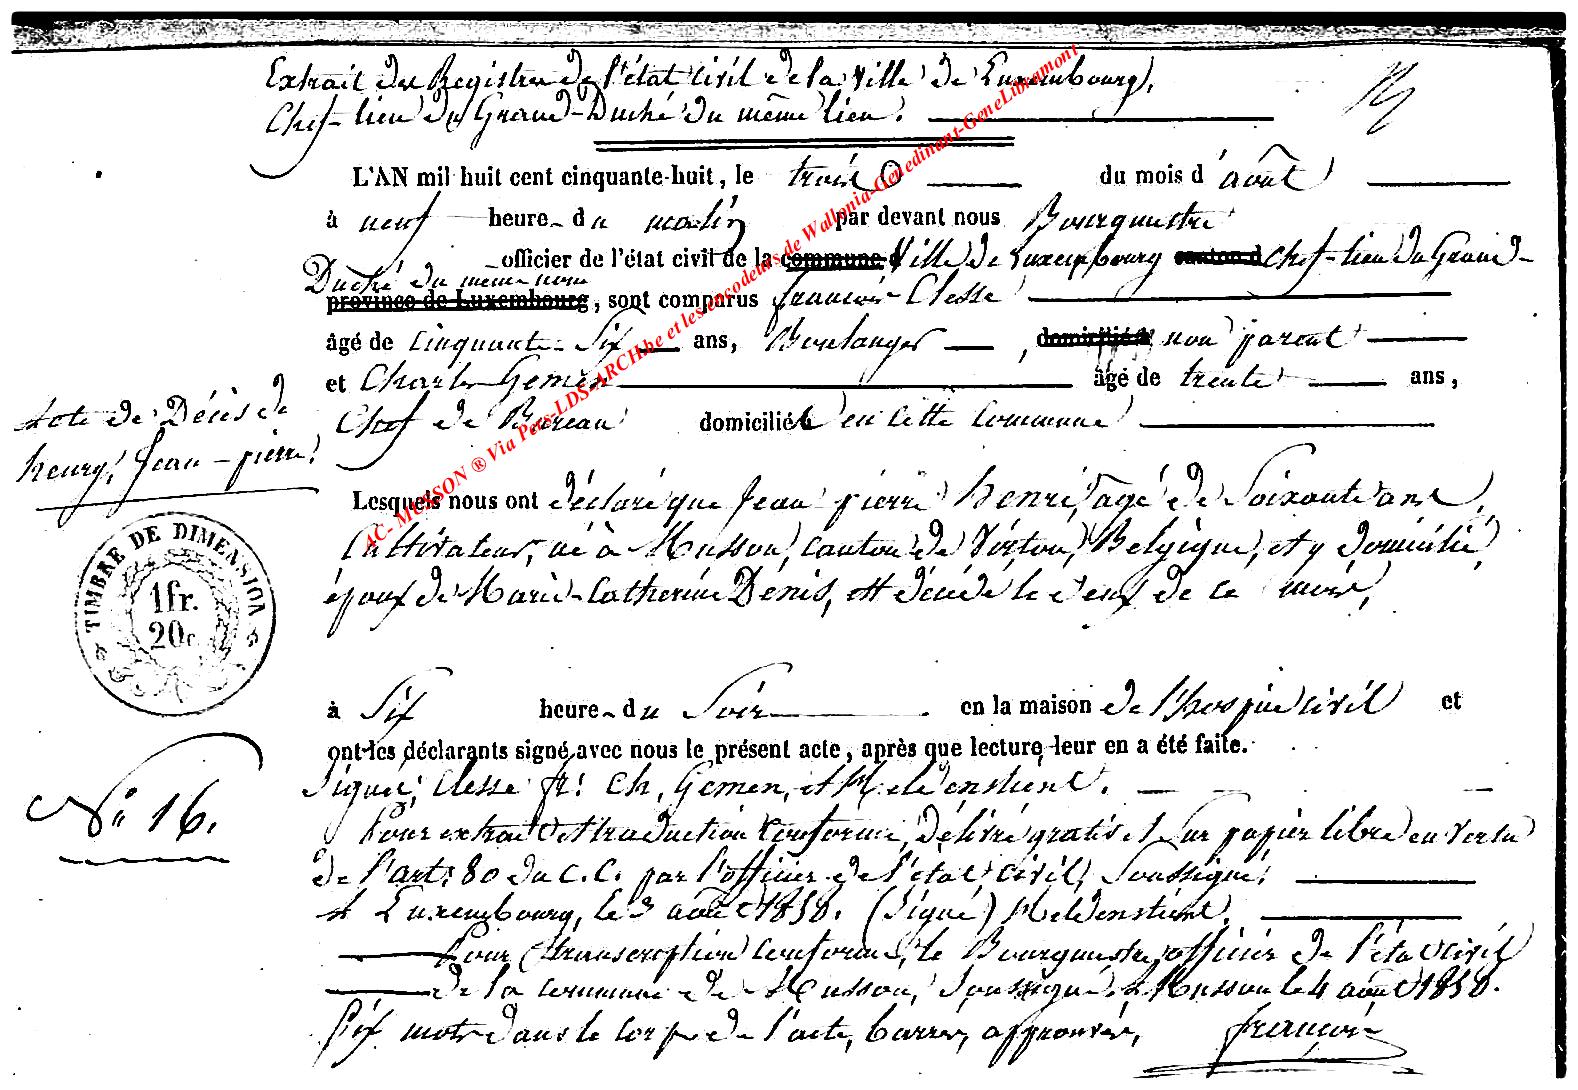 Extrait du Registre de l'état civil de la Ville de Luxembourg,
Chef-lieu du Grand-Duché du même lieu.
L'AN mil huit cent cinquante-huit, le trois du mois d'août
à neuf heure du matin par devant nous Bourgmestre
officier de l'état civil de la commune d Ville de Luxembourg canton d Chef-lieu du Grand-
Duché du même nom
province de Luxembourg, sont comparus françois Clesse
âgé de cinquante-Six ans, Boulanger, domicilié à non parent
et Charles Gemen âgé de trente ans,
Chef de Bureau domiciliés en cette commune
Acte de Décès de
henry, Jean-pierre.
Lesquels nous ont déclaré que Jean pierre henri, âgé de Soixante ans,
Cultivateur, né à Musson, canton de Virton, Belgique, et y domicilié,
époux de Marie-Catherine Denis, est décédé le deux de ce mois,
TIMBRE DE DIMENSION
1 fr.
20 c.
à Six heure du Soir en la maison de l'hospice civil et
ont les déclarants signé avec nous le présent acte, après que lecture leur en a été faite.
Signé, Clesse fr. Ch. Gemen, et
N° 16.
Pour extrait et traduction conforme, délivré gratis et Sur papier libre en vertu
de l'art. 80 du C.C. par l'officier de l'état civil, Soussigné.
à Luxembourg, le 3 août 1858. (Signé)
Pour transcription conforme, le Bourgmestre, officier de l'état civil
de la commune de Musson, Soussigné. à Musson le 4 août 1858.
Six mots dans le corps de l'acte, barrés, approuvés, françois
4C- MUSSON ® Via Pers-LDS-ARCH.be et les encodeurs de Wallonia-Genedinant-GeneLibramont